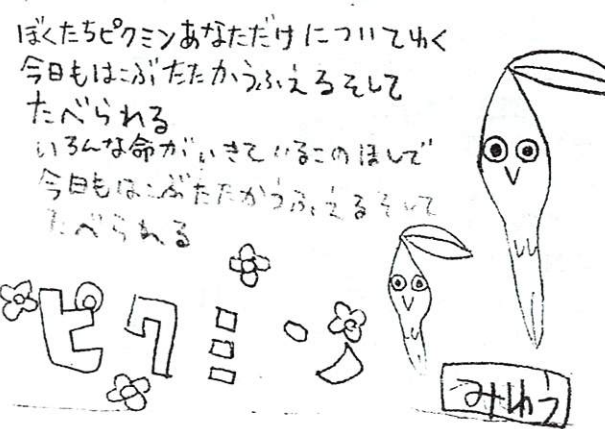 ぼくたちピクミンあなただけについてゆく
今日もはこぶたたかうふえるそして
たべられる
いろんな命がいきているこのほしで
今日もはこぶたたかうふえるそして
たべられる
ピクミン
みゆう